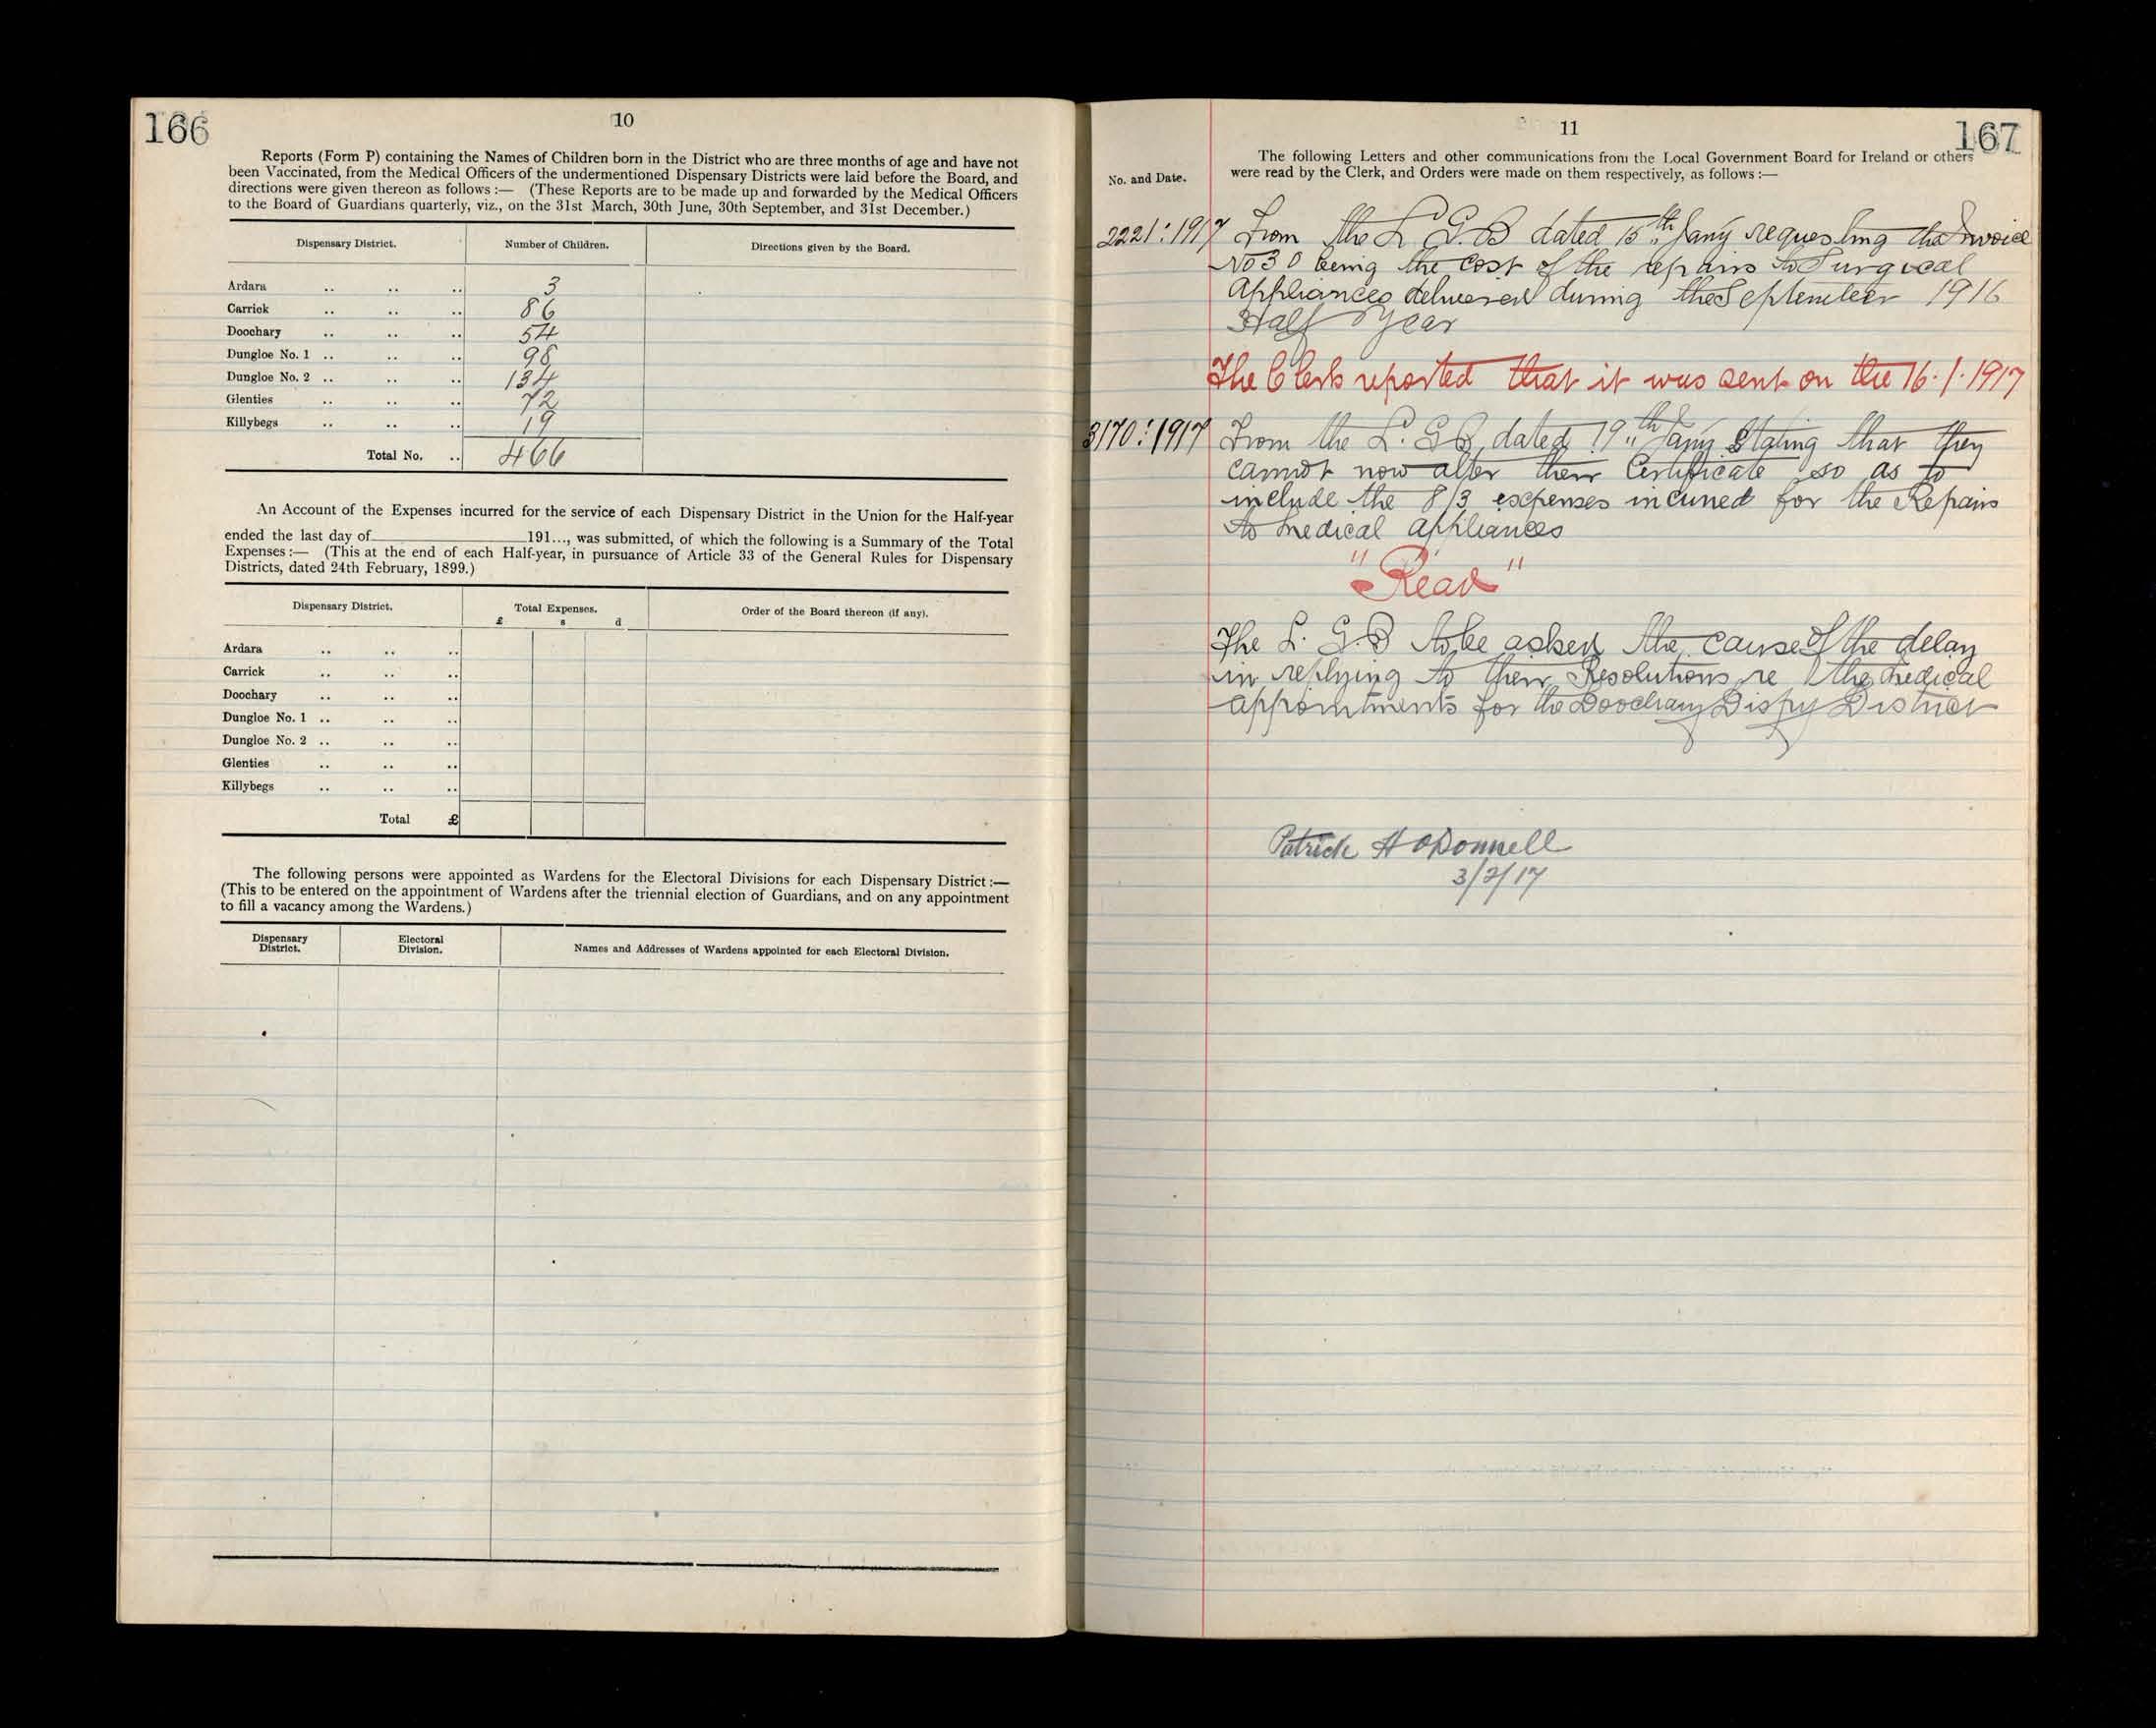 166
10
Reports (Form P) containing the Names of Children born in the District who are three months of age and have not
been Vaccinated, from the Medical Officers of the undermentioned Dispensary Districts were laid before the Board, and
directions were given thereon as follows :— (These Reports are to be made up and forwarded by the Medical Officers
to the Board of Guardians quarterly, viz., on the 31st March, 30th June, 30th September, and 31st December.)
Dispensary District. Number of Children. Directions given by the Board.
Ardara .. .. .. 3
Carrick .. .. .. 86
Doochary .. .. .. 54
Dungloe No. 1 .. .. .. 98
Dungloe No. 2 .. .. .. 134
Glenties .. .. .. 72
Killybegs .. .. .. 19
Total No. .. 466
An Account of the Expenses incurred for the service of each Dispensary District in the Union for the Half-year
ended the last day of 191..., was submitted, of which the following is a Summary of the Total
Expenses :— (This at the end of each Half-year, in pursuance of Article 33 of the General Rules for Dispensary
Districts, dated 24th February, 1899.)
Dispensary District. Total Expenses. Order of the Board thereon (if any).
£ s d
Ardara .. .. ..
Carrick .. .. ..
Doochary .. .. ..
Dungloe No. 1 .. .. ..
Dungloe No. 2 .. .. ..
Glenties .. .. ..
Killybegs .. .. ..
Total £
The following persons were appointed as Wardens for the Electoral Divisions for each Dispensary District :—
(This to be entered on the appointment of Wardens after the triennial election of Guardians, and on any appointment
to fill a vacancy among the Wardens.)
Dispensary District. Electoral Division. Names and Addresses of Wardens appointed for each Electoral Division.
11
167
No. and Date.
The following Letters and other communications from the Local Government Board for Ireland or others
were read by the Clerk, and Orders were made on them respectively, as follows :—
2221:1917 From the L G.B dated 15th Jany requesting the Invoice
No 30 being the cost of the repairs to Surgical
Appliances delivered during the September 1916
Half Year
The Clerk reported that it was sent on the 16.1.1917
3170:1917 From the L. G B, dated 19th Jany Stating that they
cannot now alter their Certificate so as to
include the 8/3 expenses incurred for the Repairs
to medical appliances
"Read"
The L. G.B to be asked the cause of the delay
in replying to their Resolutions re the medical
appointments for the Doochary Dispy District
Patrick H ODonnell
3/2/17